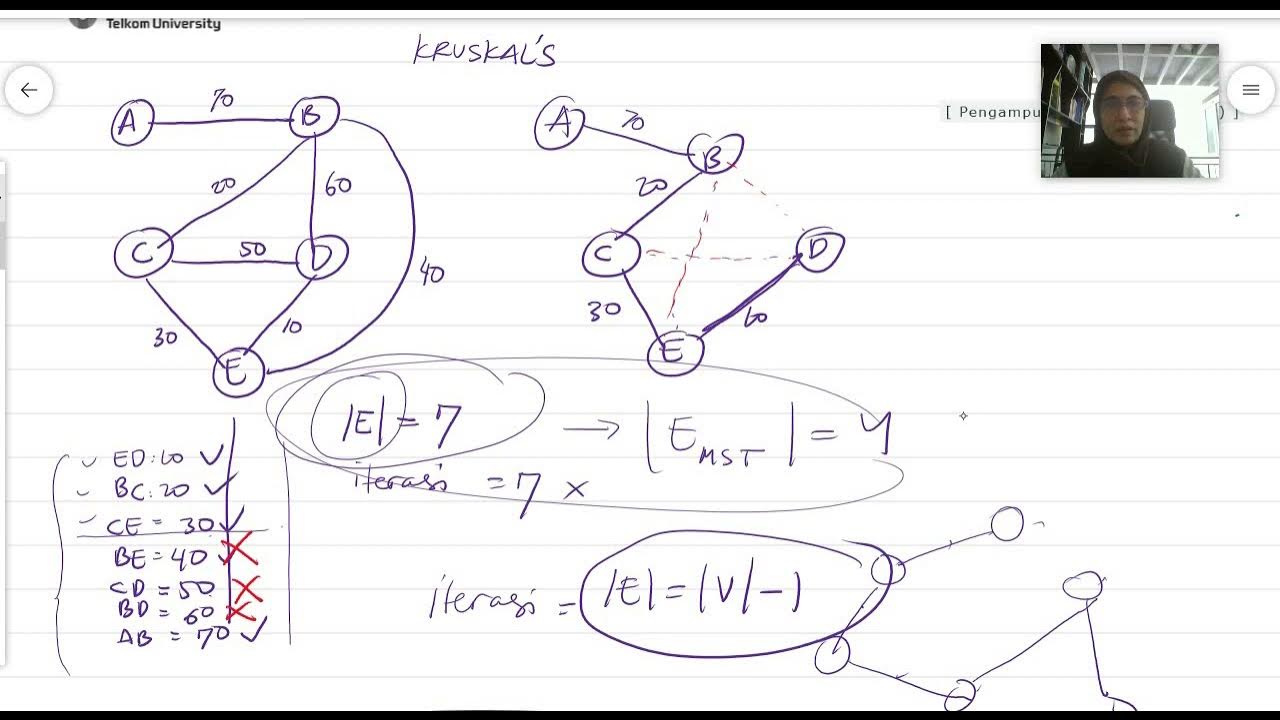 Telkom University
KRUSKAL'S
[ Pengampu
) ]
A 70 B
20
60
C 50 D
40
30
10
E
A 70 B
20
C D
30
60
E
|E| = 7 → |E MST| = 4
iterasi = 7 x
ED:10 ✓
BC:20 ✓
CE = 30 ✓
BE = 40 ✗
CD = 50 ✗
BD = 60 ✗
AB = 70 ✓
iterasi = |E| = |V| - 1